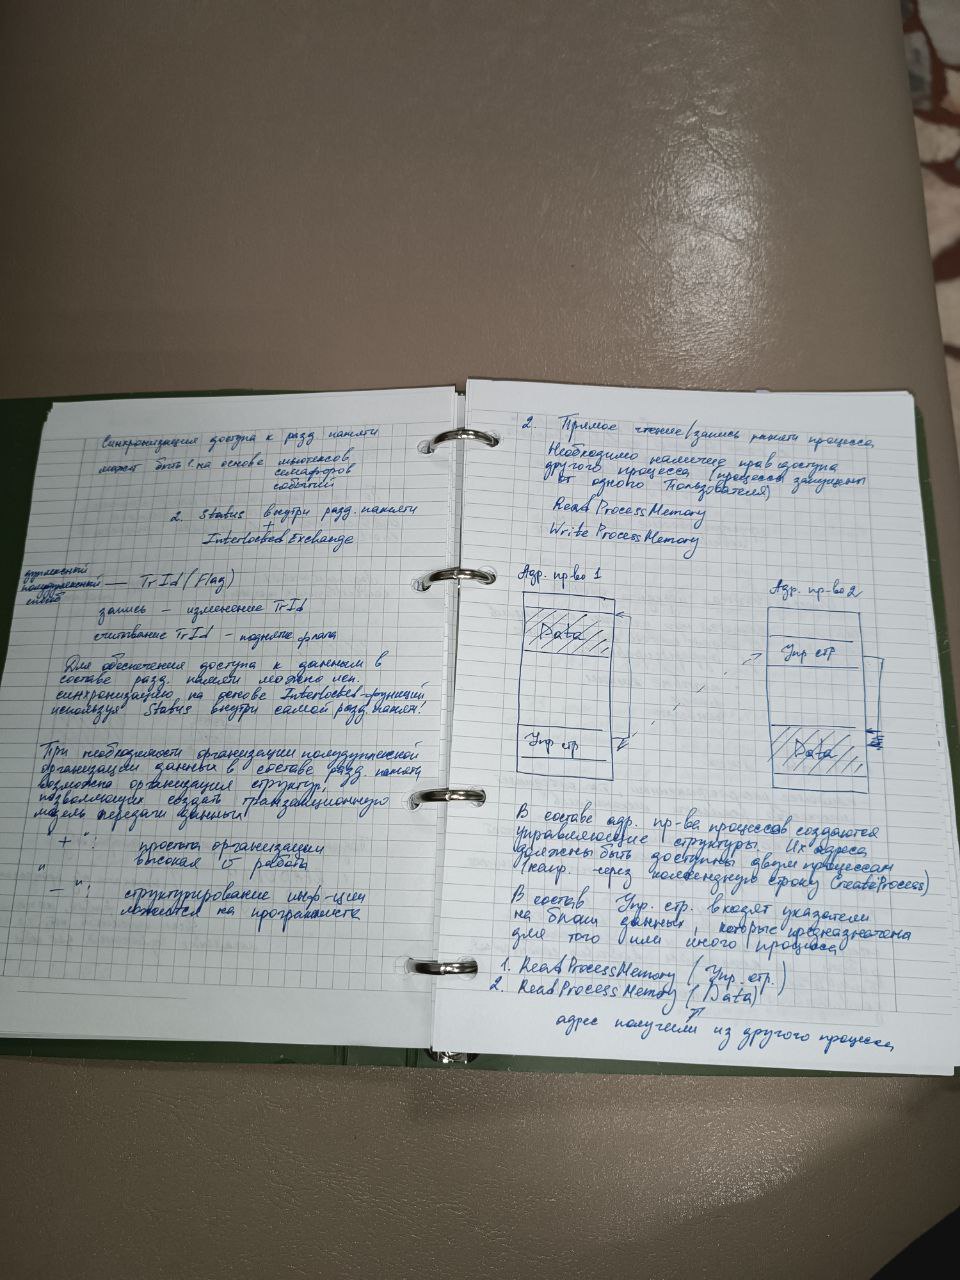 Синхронизация доступа к разд. памяти
может быть 1. на основе мьютексов
семафоров
событий
2. Status внутри разд. памяти
+
Interlocked Exchange
полудуплексный — TrId (Flag)
способ
запись — изменение TrId
считывание TrId — поднятие флага
Для обеспечения доступа к данным в
составе разд. памяти можно исп.
синхронизацию на основе Interlocked-функций
используя Status внутри самой разд. памяти!
При необходимости организации полудуплексной
организации данных в составе разд. памяти
возможна организация структур,
позволяющих создать транзакционную
модель передачи данных
"+": простота организации
высокая υ работы
"—": структурирование инф-ции
ложится на программиста
2. Прямое чтение/запись памяти процесса
Необходимо наличие прав доступа
другого процесса (процессы запущены
от одного пользователя)
Read Process Memory
Write Process Memory
Адр. пр-во 1
Адр. пр-во 2
Data
Упр. стр
Упр. стр
Data
В составе адр. пр-ва процессов создаются
управляющие структуры. Их адреса
должны быть доступны двум процессам
(напр. через командную строку CreateProcess)
В состав Упр. стр. входят указатели
на блоки данных, которые предназначена
для того или иного процесса
1. Read Process Memory (Упр. стр.)
2. Read Process Memory (Data)
адрес получили из другого процесса